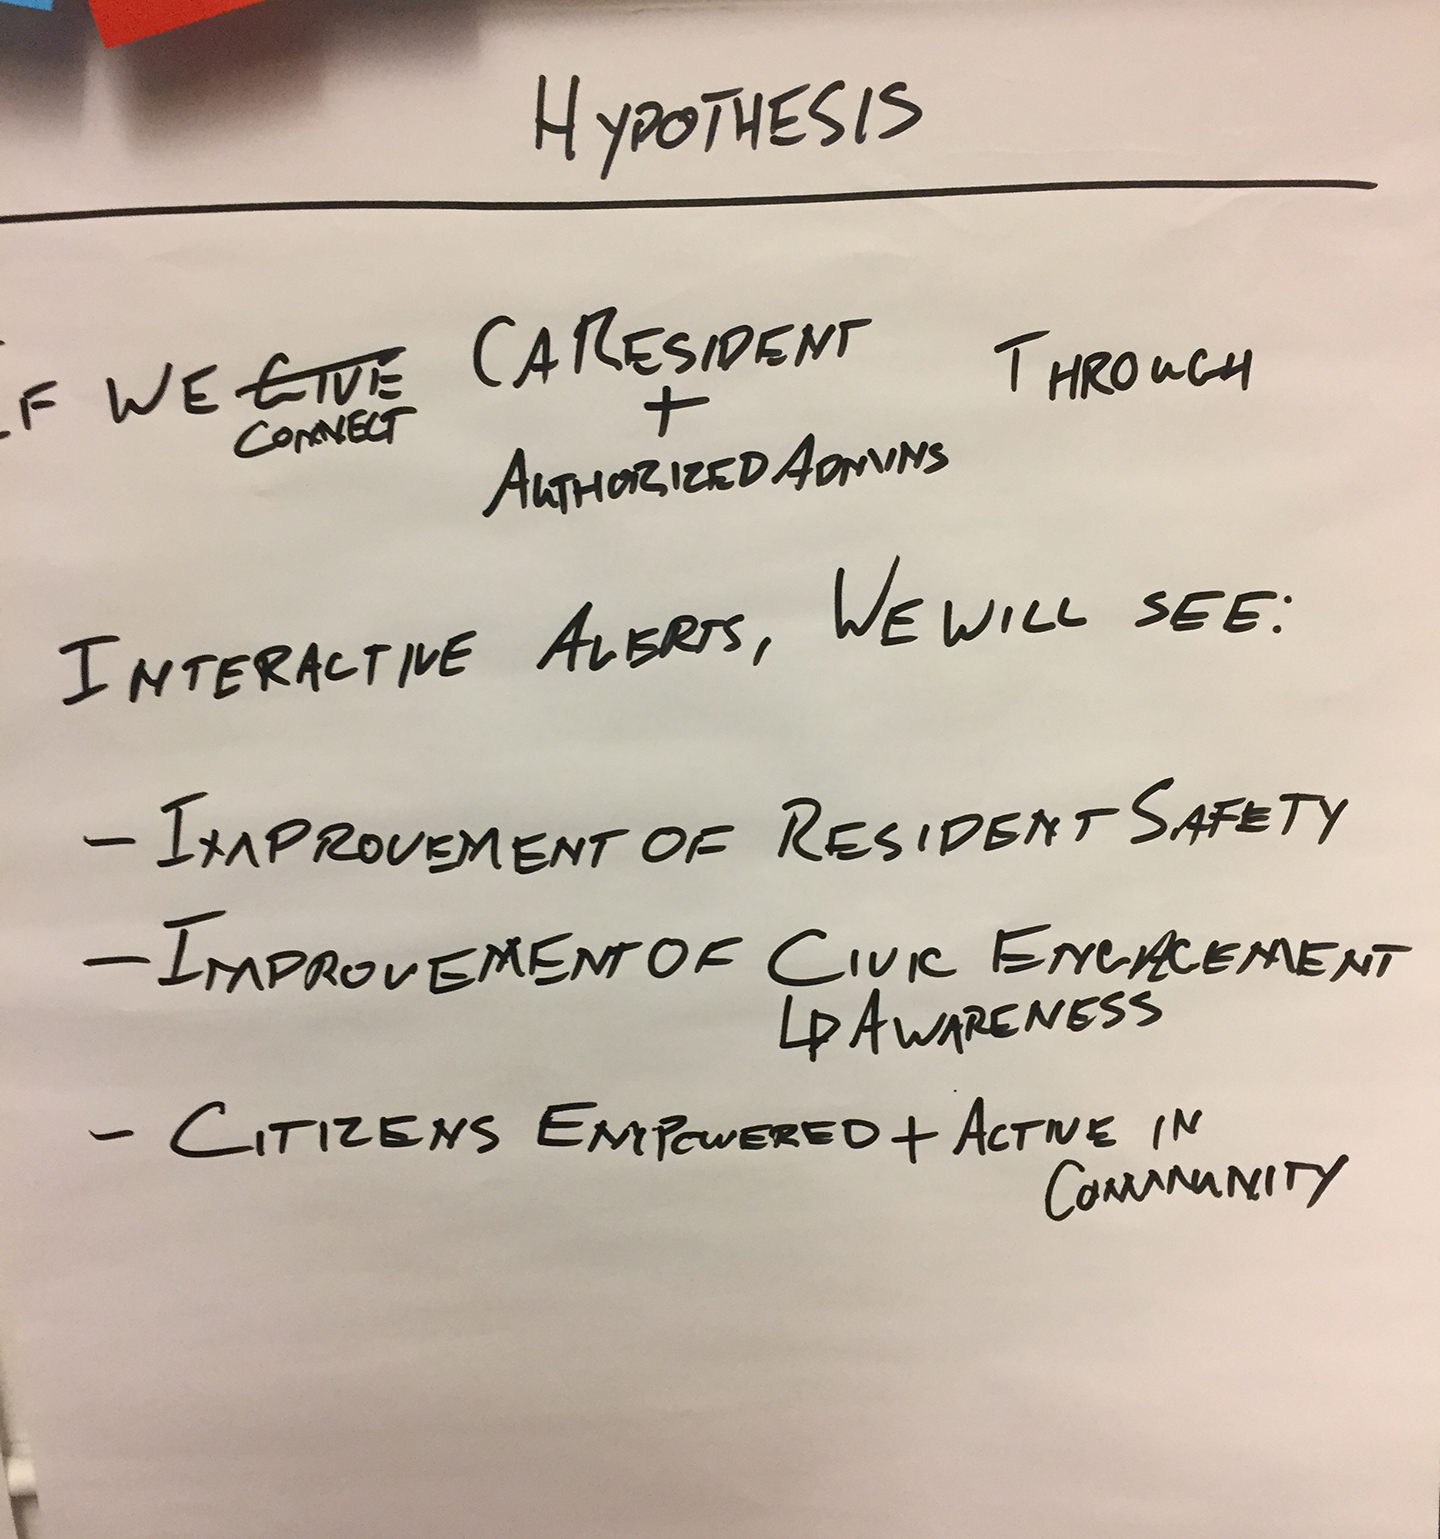 HYPOTHESIS
IF WE GIVE CA RESIDENT THROUGH
CONNECT +
AUTHORIZED ADMINS
INTERACTIVE ALERTS, WE WILL SEE:
- IMPROVEMENT OF RESIDENT SAFETY
- IMPROVEMENT OF CIVIC ENGAGEMENT
↳ AWARENESS
- CITIZENS EMPOWERED + ACTIVE IN
COMMUNITY